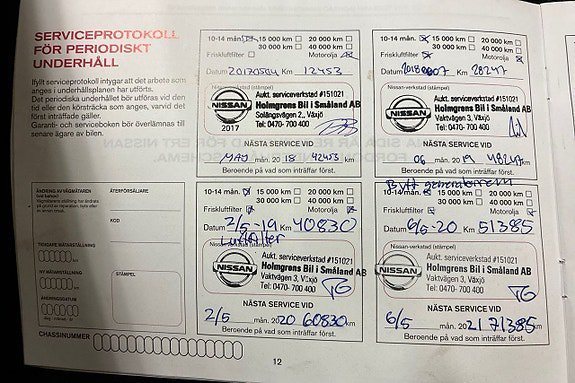 SERVICEPROTOKOLL
FÖR PERIODISKT
UNDERHÅLL
Ifyllt serviceprotokoll intygar att det arbete som
anges i underhållsplanen har utförts.
Det periodiska underhållet bör utföras vid den
tid eller den körsträcka som anges, varvid det
först inträffade gäller.
Garanti- och serviceboken bör överlämnas till
senare ägare av bilen.
ÄNDRING AV VÄGMÄTAREN
ÅTERFÖRSÄLJARE
KOD
TIDIGARE MÄTARSTÄLLNING
NY MÄTARSTÄLLNING
STÄMPEL
ÄNDRINGSDATUM
CHASSINUMMER
10-14 mån. 15 000 km 20 000 km
30 000 km 40 000 km
Friskluftfilter Motorolja
Datum 20170504 Km 12453
Nissan-verkstad (stämpel)
Aukt. serviceverkstad #151021
Holmgrens Bil i Småland AB
Solängsvägen 2., Växjö
Tel: 0470- 700 400
NISSAN
2017
NÄSTA SERVICE VID
MAJ mån. 20 18 42453 km
Beroende på vad som inträffar först.
10-14 mån. 15 000 km 20 000 km
30 000 km 40 000 km
Friskluftfilter Motorolja
Datum Km 28247
Aukt. serviceverkstad #151021
Holmgrens Bil i Småland AB
Vaktvägen 3, Växjö
Tel: 0470-700 400
NISSAN
NÄSTA SERVICE VID
06 mån. 20 19 48247 km
Beroende på vad som inträffar först.
10-14 mån. 15 000 km 20 000 km
30 000 km 40 000 km
Friskluftfilter Motorolja
Datum 2/5-19 Km 40830
Luftfilter
Nissan-verkstad (stämpel)
Aukt. serviceverkstad #151021
Holmgrens Bil i Småland AB
Vaktvägen 3, Växjö
Tel: 0470-700 400
NISSAN
NÄSTA SERVICE VID
2/5 mån. 20 20 60830 km
Beroende på vad som inträffar först.
Bytt generatorrem
10-14 mån. 15 000 km 20 000 km
30 000 km 40 000 km
Friskluftfilter Motorolja
Datum 6/5-20 Km 51385
Nissan-verkstad (stämpel)
Aukt. serviceverkstad #151021
Holmgrens Bil i Småland AB
Vaktvägen 3, Växjö
Tel: 0470-700 400
NISSAN
NÄSTA SERVICE VID
6/5 mån. 20 21 71385 km
Beroende på vad som inträffar först.
12